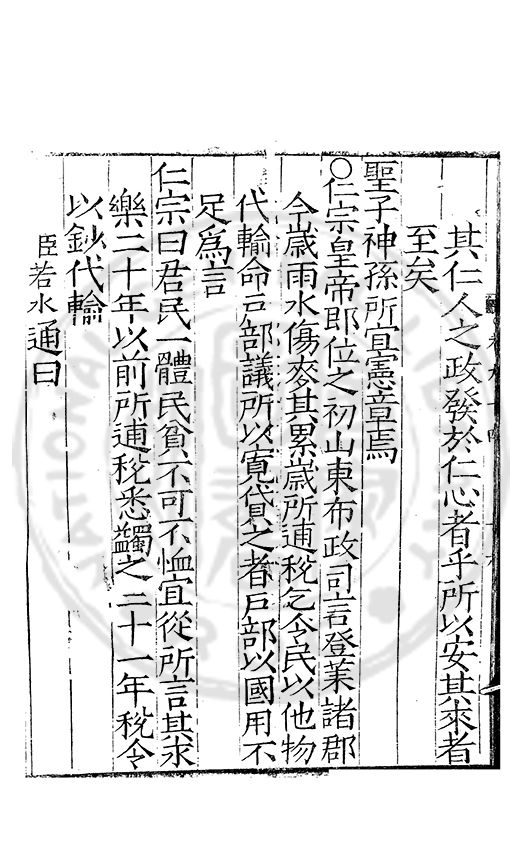 其仁人之政發於仁心者乎所以安其來者
至矣
聖子神孫所宜憲章焉
○仁宗皇帝即位之初山東布政司言登萊諸郡
今歲雨水傷麥其累歲所逋稅乞令民以他物
代輸命戸部議所以寬貸之者戸部以國用不
足爲言
仁宗曰君民一體民貧不可不恤宜從所言其求
樂二十年以前所逋稅悉蠲之二十一年稅令
以鈔代輸
臣若水通曰